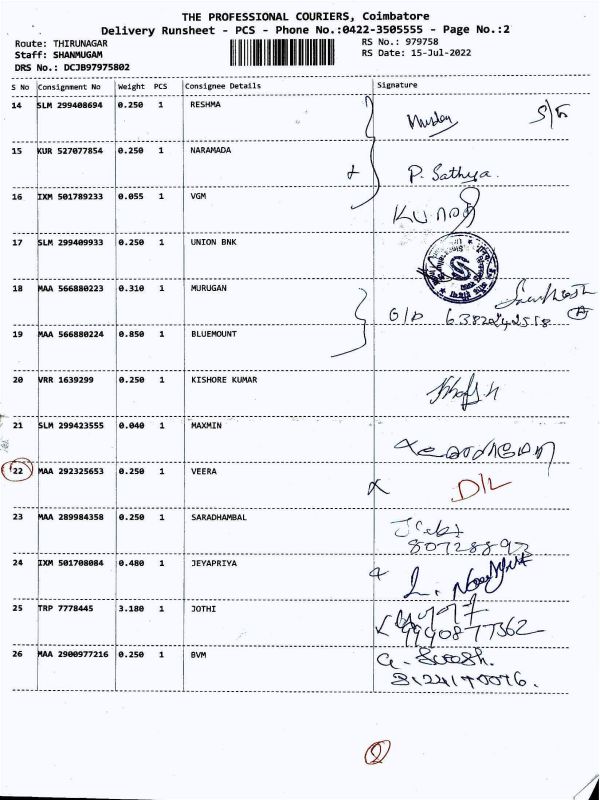 THE PROFESSIONAL COURIERS, Coimbatore
Delivery Runsheet - PCS - Phone No.:0422-3505555 - Page No.:2
Route: THIRUNAGAR RS No.: 979758
Staff: SHANMUGAM RS Date: 15-Jul-2022
DRS No.: DCJB97975802
S No Consignment No Weight PCS Consignee Details Signature
14 SLM 299408694 0.250 1 RESHMA
15 KUR 527077854 0.250 1 NARAMADA P. Sathya.
16 IXM 501789233 0.055 1 VGM
17 SLM 299409933 0.250 1 UNION BNK
18 MAA 566880223 0.310 1 MURUGAN
6382242518
19 MAA 566880224 0.850 1 BLUEMOUNT
20 VRR 1639299 0.250 1 KISHORE KUMAR
21 SLM 299423555 0.040 1 MAXMIN
22 MAA 292325653 0.250 1 VEERA D/L
23 MAA 289984358 0.250 1 SARADHAMBAL
24 IXM 501708084 0.480 1 JEYAPRIYA
25 TRP 7778445 3.180 1 JOTHI
26 MAA 2900977216 0.250 1 BVM
2